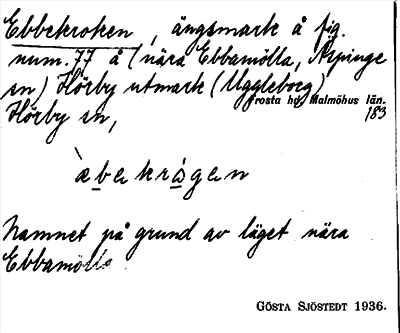 Ebbekroken, ängsmark å fig.
num. 77 å (nära Ebbamölla, Äspinge
sn) Hörby utmark (Uggleborg)
Frosta hd, Malmöhus län.
183
Hörby sn,
`æbekrågen
Namnet på grund av läget nära
Ebbamölla.
GÖSTA SJÖSTEDT 1936.